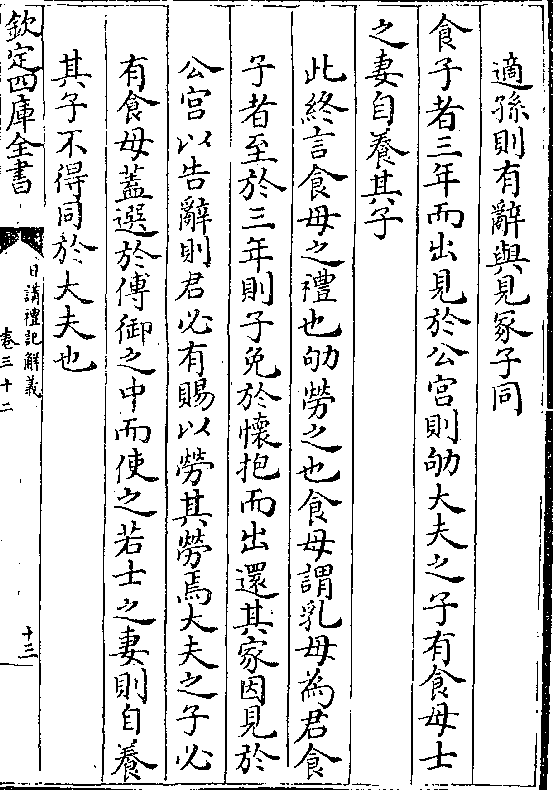 適孫則有辭與見冢子同
食子者三年而出見於公宮則劬大夫之子有食母士
之妻自養其子
此終言食母之禮也劬勞之也食母謂乳母為君食
子者至於三年則子免於懷抱而出還其家因見於
公宮以告辭則君必有賜以勞其勞焉大夫之子必
有食母蓋選於傅御之中而使之若士之妻則自養
其子不得同於大夫也
欽定四庫全書
日講禮記解義
卷三十二
十三